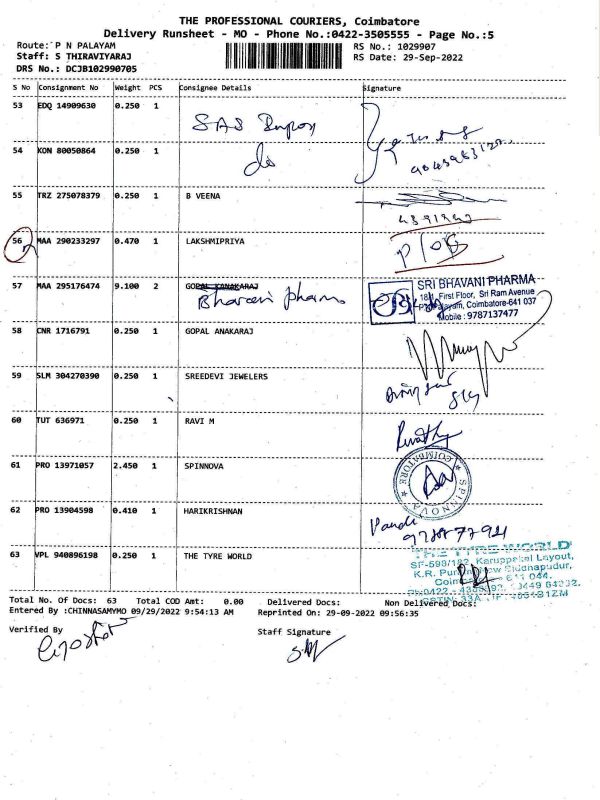 THE PROFESSIONAL COURIERS, Coimbatore
Delivery Runsheet - MO - Phone No.:0422-3505555 - Page No.:5
Route: P N PALAYAM
RS No.: 1029907
Staff: S THIRAVIYARAJ
RS Date: 29-Sep-2022
DRS No.: DCJB102990705
S No Consignment No Weight PCS Consignee Details Signature
53 EDQ 14909630 0.250 1
SAS
54 KON 80050864 0.250 1
do
55 TRZ 275078379 0.250 1 B VEENA
56 MAA 290233297 0.470 1 LAKSHMIPRIYA
57 MAA 295176474 9.100 2 GOPAL KANAKARAJ
Bhavani pharma
SRI BHAVANI PHARMA
First Floor, Sri Ram Avenue
Coimbatore-641 037
Mobile : 9787137477
58 CNR 1716791 0.250 1 GOPAL ANAKARAJ
59 SLM 304270390 0.250 1 SREEDEVI JEWELERS
60 TUT 636971 0.250 1 RAVI M
61 PRO 13971057 2.450 1 SPINNOVA
COIMBATORE
SPINNOVA
62 PRO 13904598 0.410 1 HARIKRISHNAN
63 VPL 940896198 0.250 1 THE TYRE WORLD
THE TYRE WORLD
Karuppakal Layout,
K.R. Siddhapudur,
641 044.
Total No. Of Docs: 63 Total COD Amt: 0.00 Delivered Docs: Non Delivered Docs:
Entered By :CHINNASAMYMO 09/29/2022 9:54:13 AM Reprinted On: 29-09-2022 09:56:35
Verified By
Staff Signature